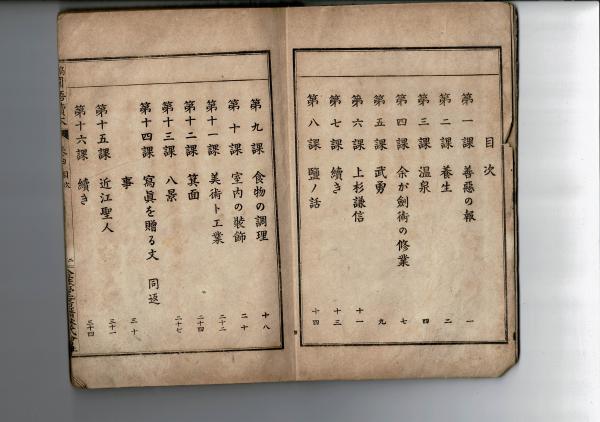 目次
第一課 善惡の報 一
第二課 養生 二
第三課 溫泉 四
第四課 余が劍術の修業 七
第五課 武勇 九
第六課 上杉謙信 十一
第七課 續き 十三
第八課 鹽ノ話 十四
第九課 食物の調理 十八
第十課 室内の裝飾 二十
第十一課 美術ト工業 二十二
第十二課 箕面 二十四
第十三課 八景 二十七
第十四課 寫眞を贈る文 同返
事 三十
第十五課 近江聖人 三十一
第十六課 續き 三十四